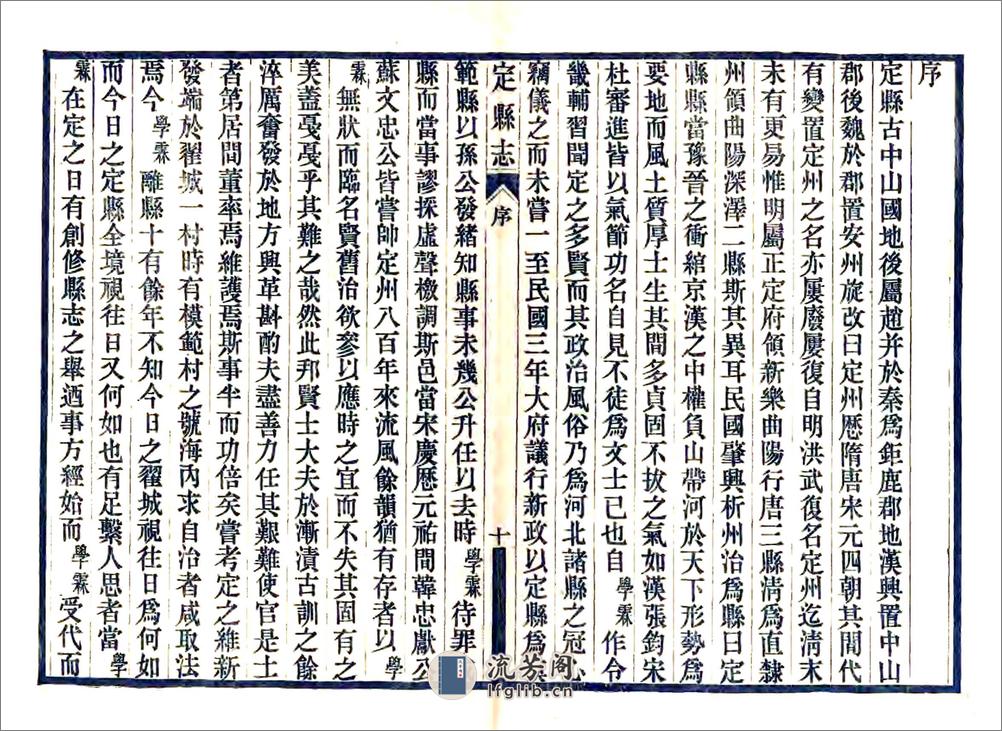 序
定縣古中山國地後屬趙并於秦爲鉅鹿郡地漢興置中山
郡後魏於郡置安州旋改曰定州歷隋唐宋元四朝其間代
有變置定州之名亦屢廢屢復自明洪武復名定州迄淸末
未有更易惟明屬正定府領新樂曲陽行唐三縣淸爲直隸
州領曲陽深澤二縣斯其異耳民國肇興析州治爲縣曰定
縣縣當豫晉之衝綰京漢之中權負山帶河於天下形勢爲
要地而風土質厚士生其間多貞固不拔之氣如漢張鈞宋
杜審進皆以氣節功名自見不徒爲文士已也自學霖作令
畿輔習聞定之多賢而其政治風俗乃爲河北諸縣之冠心
竊儀之而未嘗一至民國三年大府議行新政以定縣爲
定縣志 序 十
範縣以孫公發緒知縣事未幾公升任以去時學霖待罪
縣而當事謬採虛聲檄調斯邑當宋慶歷元祐間韓忠獻公
蘇文忠公皆嘗帥定州八百年來流風餘韻猶有存者以學
霖無狀而臨名賢舊治欲參以應時之宜而不失其固有之
美蓋戛戛乎其難之哉然此邦賢士大夫於漸漬古訓之餘
淬厲奮發於地方興革斟酌夫盡善力任其艱難使官是土
者第居間董率焉維護焉斯事半而功倍矣嘗考定之維新
發端於翟城一村時有模範村之號海內求自治者咸取法
焉今學霖離縣十有餘年不知今日之翟城視往日爲何如
而今日之定縣全境視往日又何如也有足繫人思者當學
霖在定之日有創修縣志之舉迺事方經始而學霖受代而
流芳阁
lfglib.cn